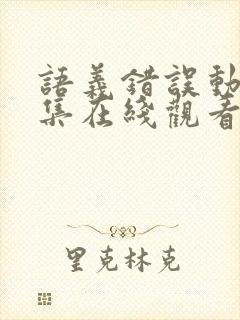 語義錯誤動
集在綫觀看
里克林克